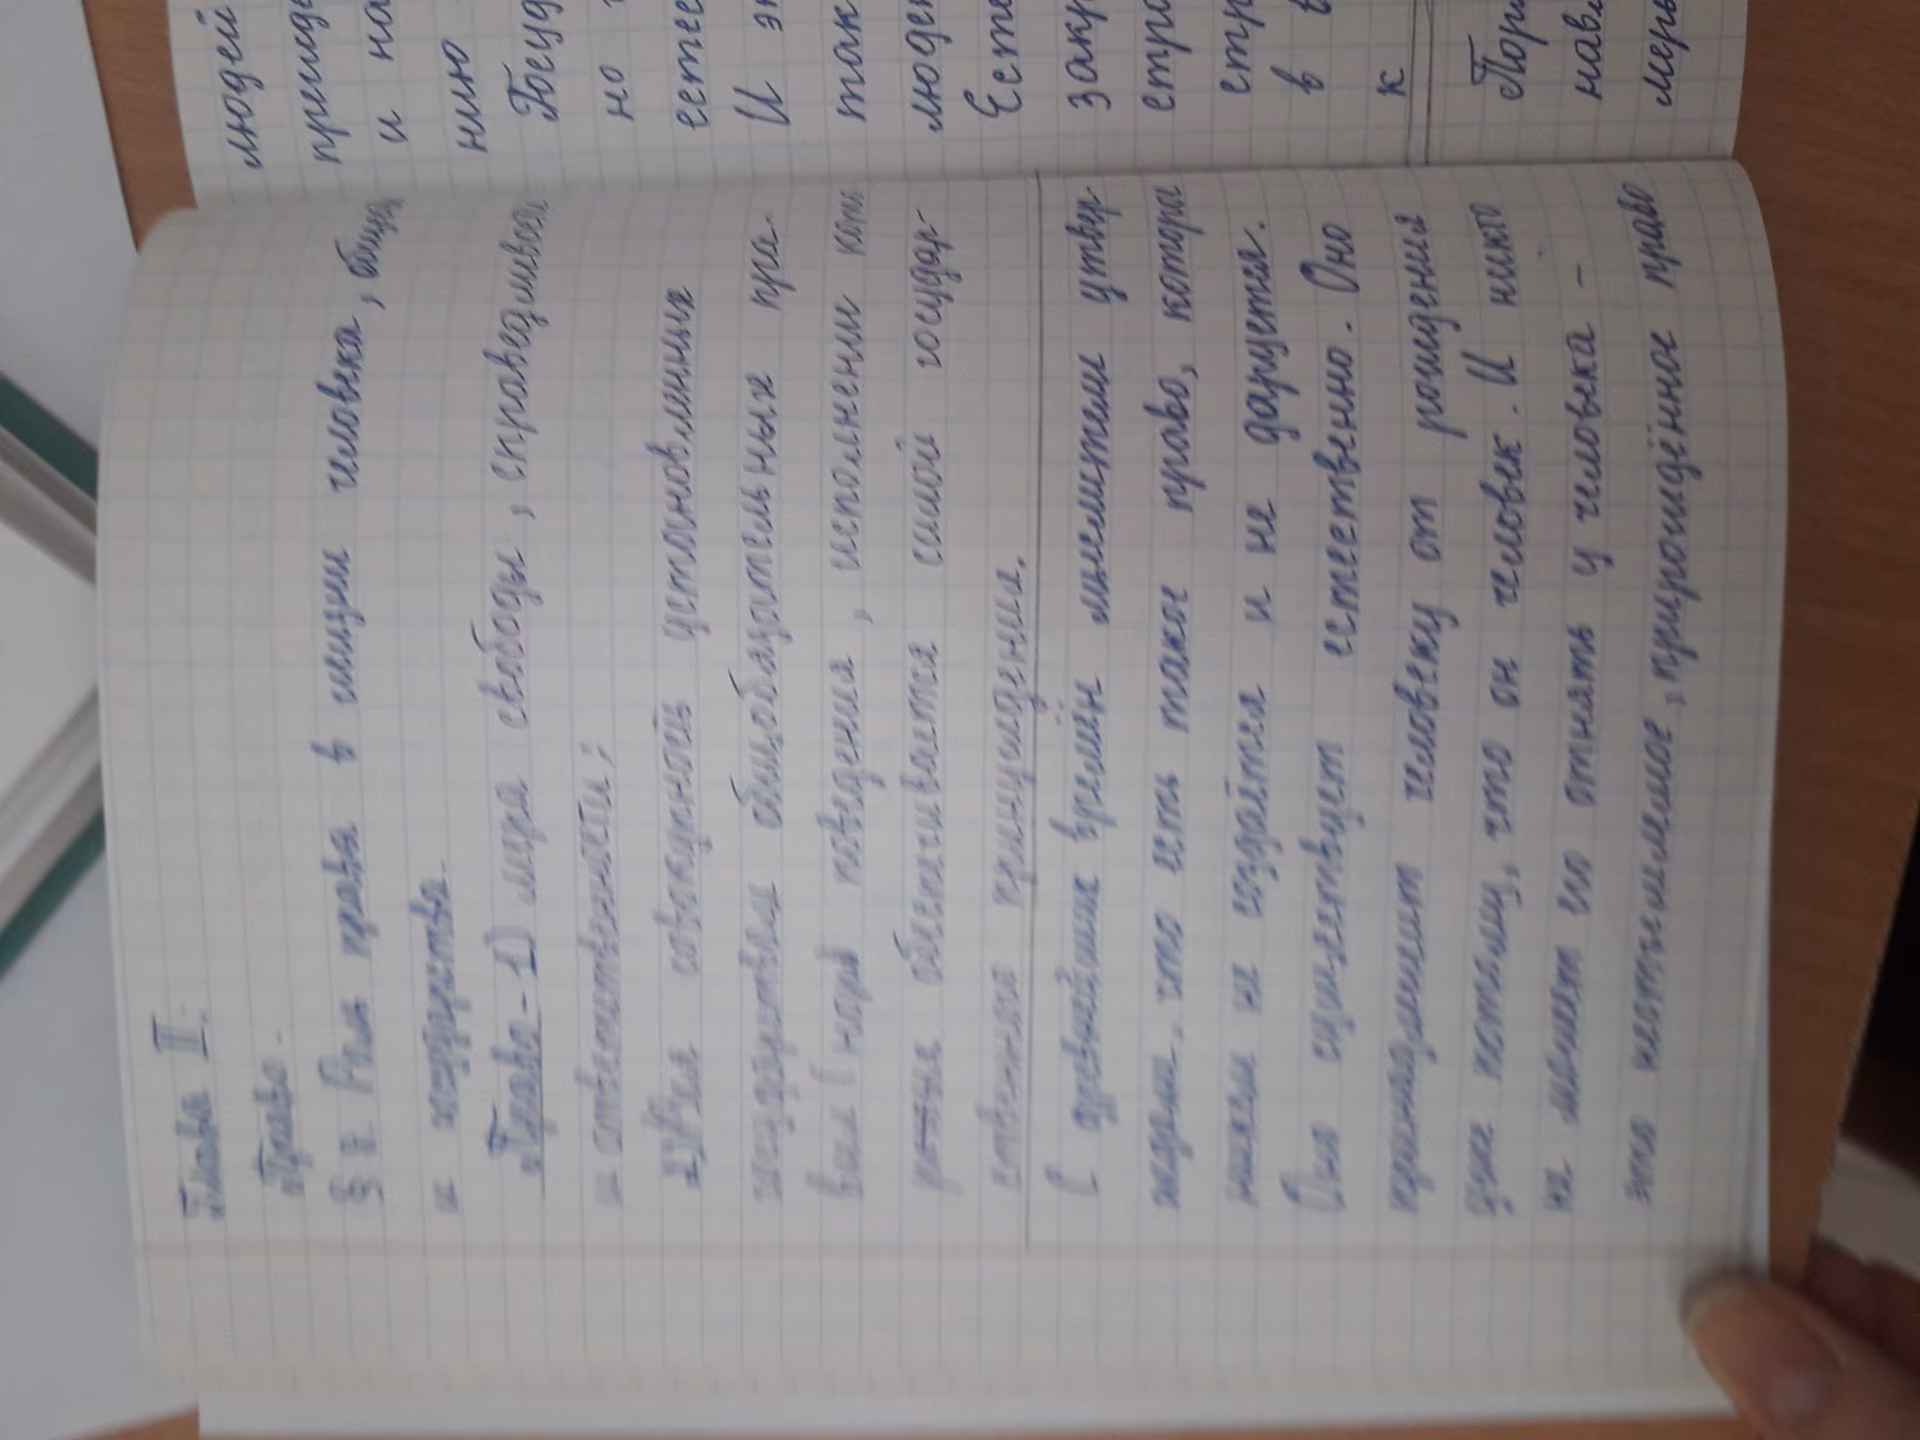 Глава II.
Право.
§ 8 Роль права в жизни человека, общес
и государства.
Право - 1) мера свободы, справедливост
и ответственности;
2) Это совокупность установленных
государством общеобязательных пра-
вил (норм поведения, исполнении кото
рых обеспечивается силой государ-
ственного принуждения.
С древнейших времён мыслители утвер-
ждали, что есть такое право, которо
никем не создаётся и не даруется.
Оно существует естественно. Оно
принадлежит человеку от рождения
уже потому, что он человек. И никто
не может его отнять у человека -
это неотъемлемое, прирождённое право
людей
принужд
и на
нию
Госуд
но
естес
И э
так
люде
Есте
закр
стра
стр
в в
к
Пор
нав
меры